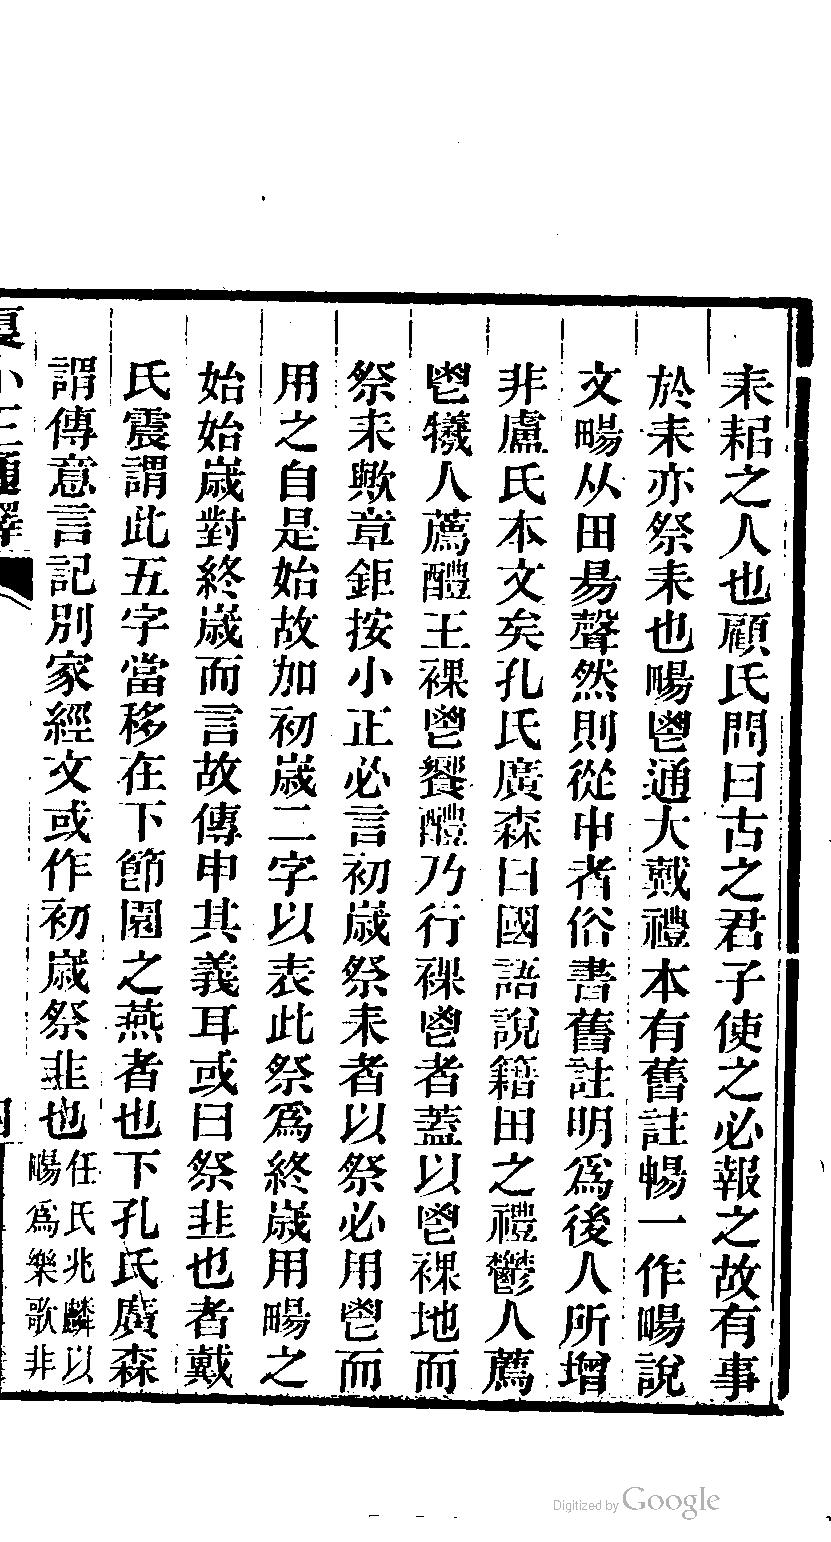 耒耜之人也顧氏問曰古之君子使之必報之故有事
於耒亦祭耒也畼鬯通大戴禮本有舊註暢一作畼說
文畼从田昜聲然則從申者俗書舊註明爲後人所增
非盧氏本文矣孔氏廣森曰國語說籍田之禮鬱人薦
鬯犧人薦醴王祼鬯饗醴乃行祼鬯者蓋以鬯祼地而
祭耒歟章鉅按小正必言初歲祭耒者以祭必用鬯而
用之自是始故加初歲二字以表此祭爲終歲用畼之
始始歲對終歲而言故傳申其義耳或曰祭韭也者戴
氏震謂此五字當移在下節囿之燕者也下孔氏廣森
謂傳意言記別家經文或作初歲祭韭也
任氏兆麟以
畼爲樂歌非
夏小正通釋
Digitized by Google